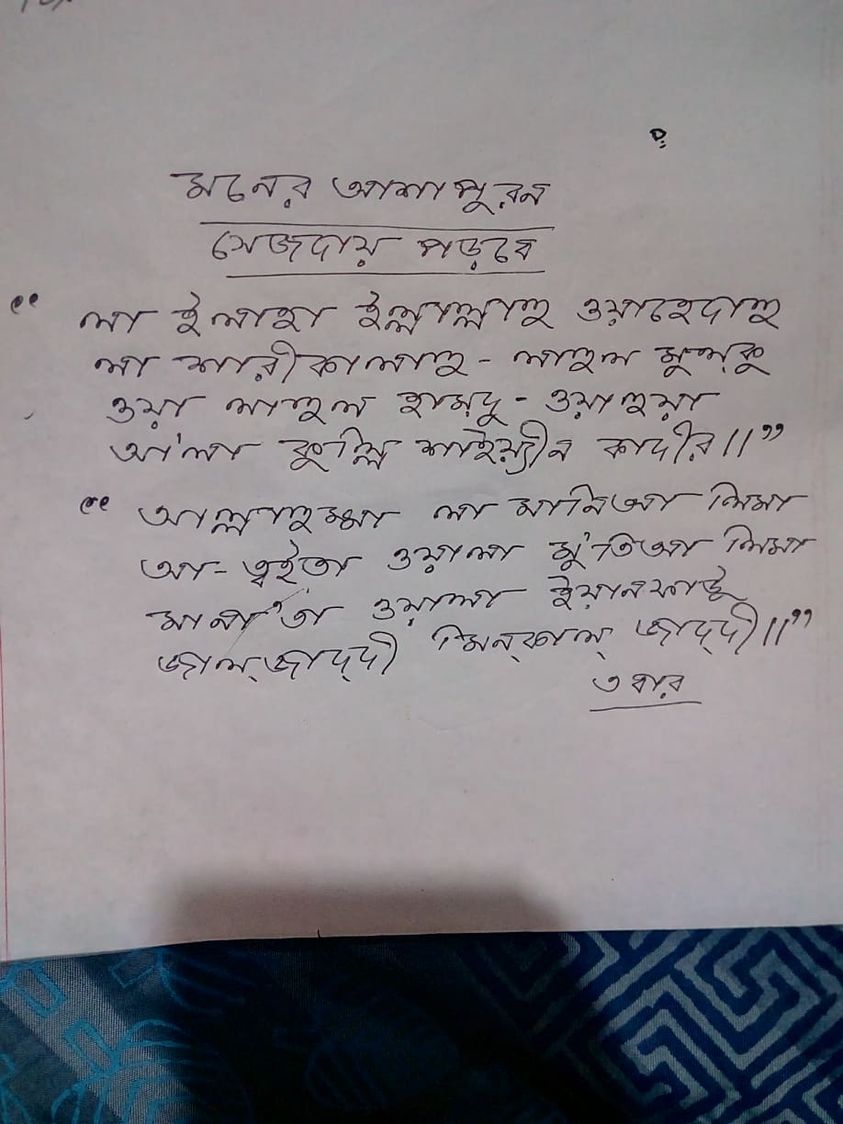 মনের আশা পুরন
সেজদায় পড়বে
“ লা ইলাহা ইল্লাল্লাহু ওয়াহেদাহু
লা শারীকালাহু - লাহুল মুল্কু
ওয়া লাহুল হাম্দু - ওয়াহুয়া
আ'লা কুল্লি শাইয়্যীন কাদীর।।”
“ আল্লাহুম্মা লা মানিআ লিমা
আ-ত্বইতা ওয়ালা মু'তিআ লিমা
মানা'তা ওয়ালা ইয়ানফাউ
জাল্জাদ্দী মিন্কাল্ জাদ্দী।।”
৩ বার